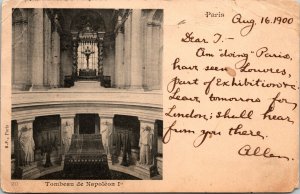 Paris
Aug 16. 1900
Dear I:-
Am "doing" Paris,
have seen Louvres,
part of Exhibition &c
Leave tomorrow for
London; shall hear
from you there.
Allen.
Tombeau de Napoléon I°